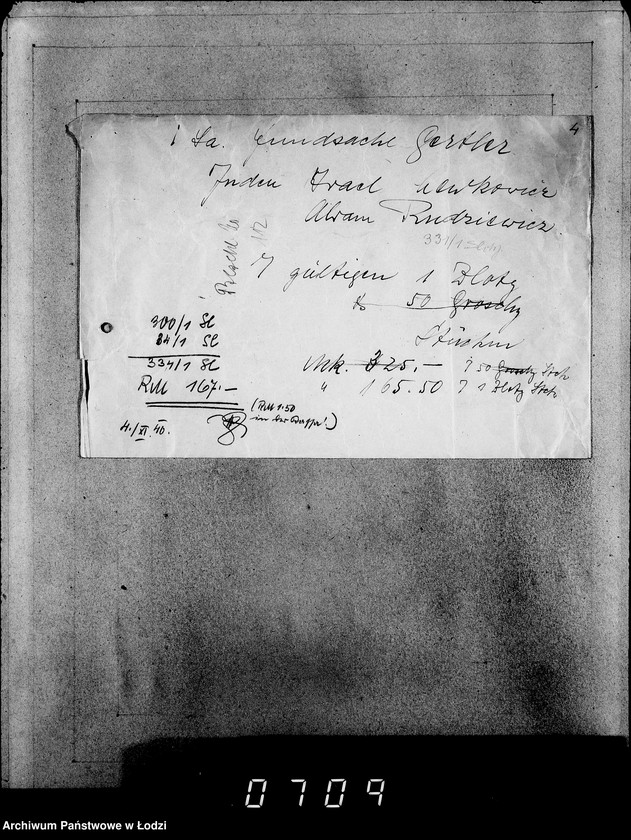 4
i. Sa. Fundsache Gertler
Juden Israel Lewkowicz
Abram Rudziewicz
331/1 Zloty
112
7 gültigen 1 Zloty
50 Groschy
Stücken
300/1 Sl
34/1 Sl
334/1 Sl
RM 167.-
Mk. 325.- 7 50 Groschy Stck
" 165.50 7 1 Zloty Stck
(RM 1.50
in der Kasse!)
4./XI. 40.
0709
Archiwum Państwowe w Łodzi